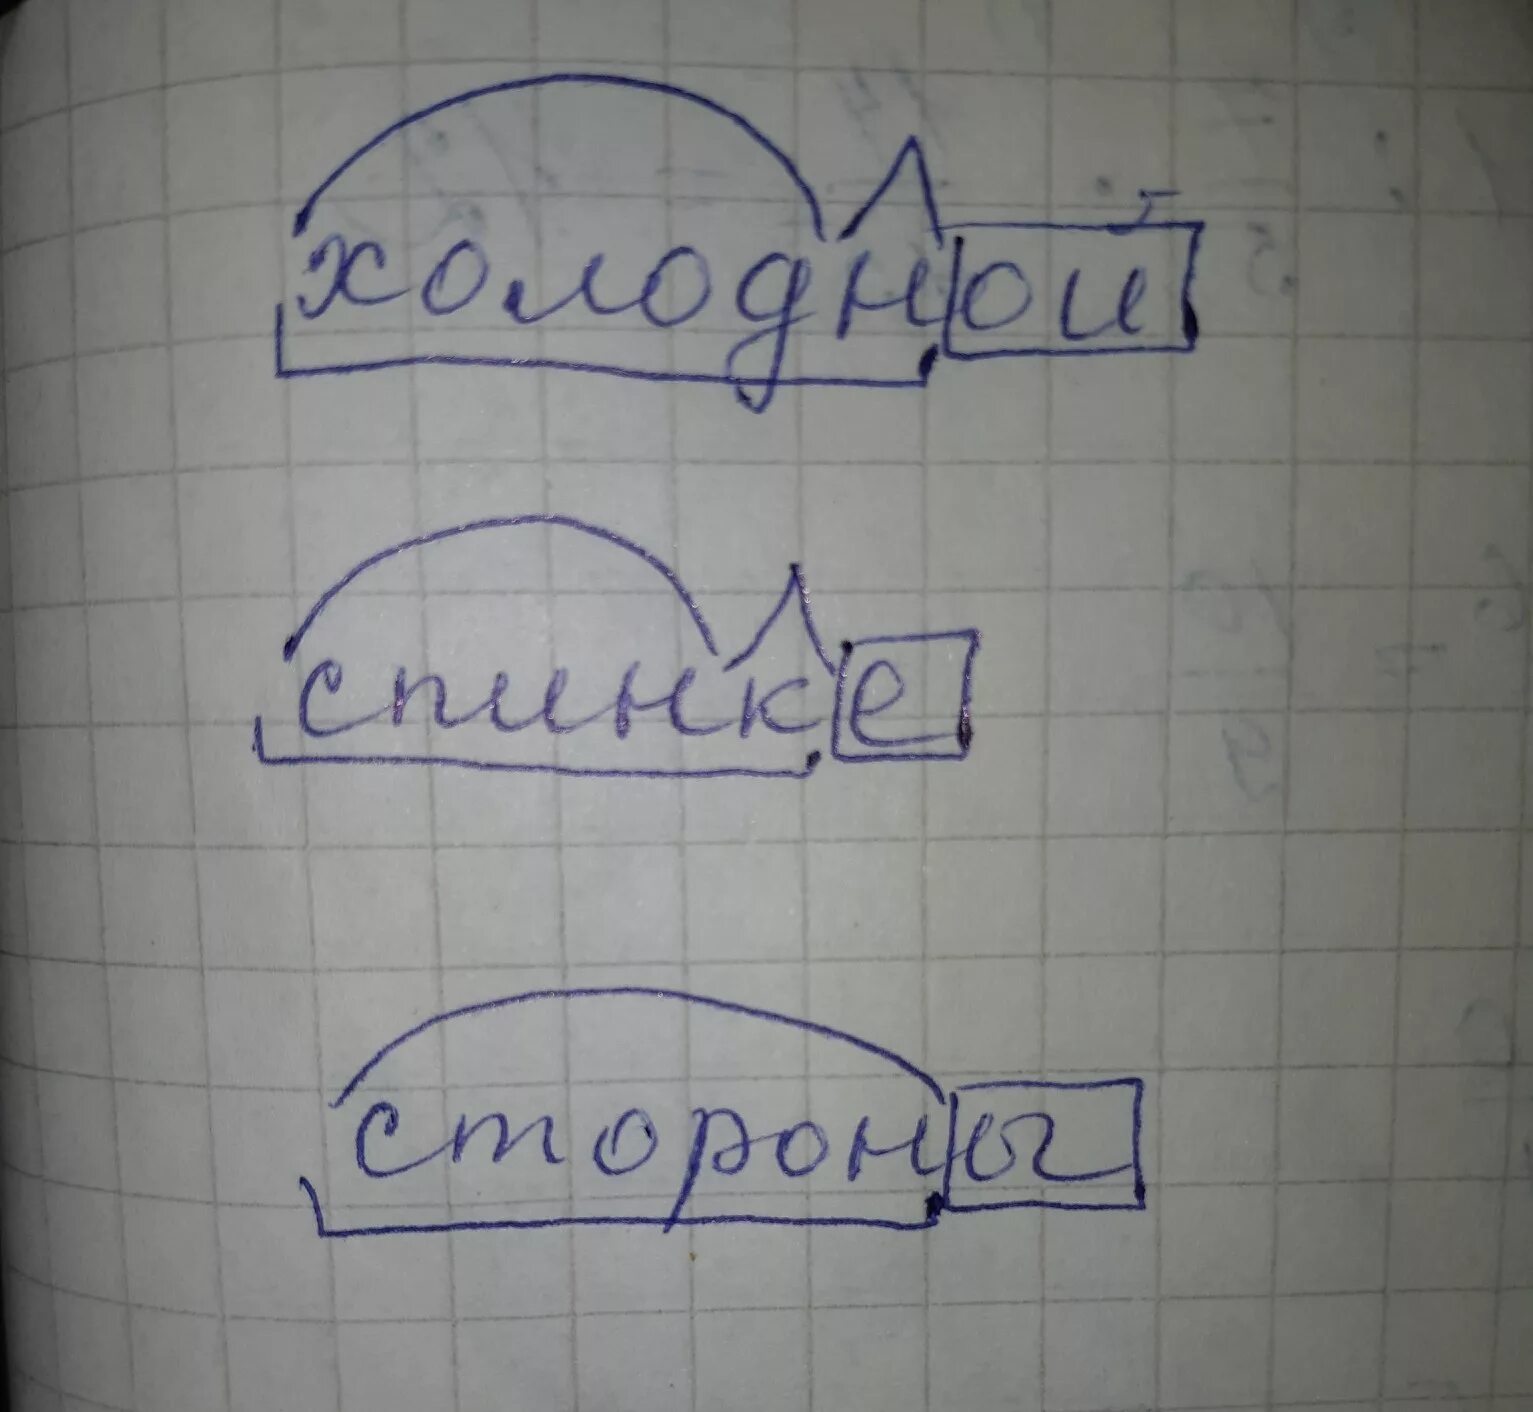 холодной
спинке
стороны